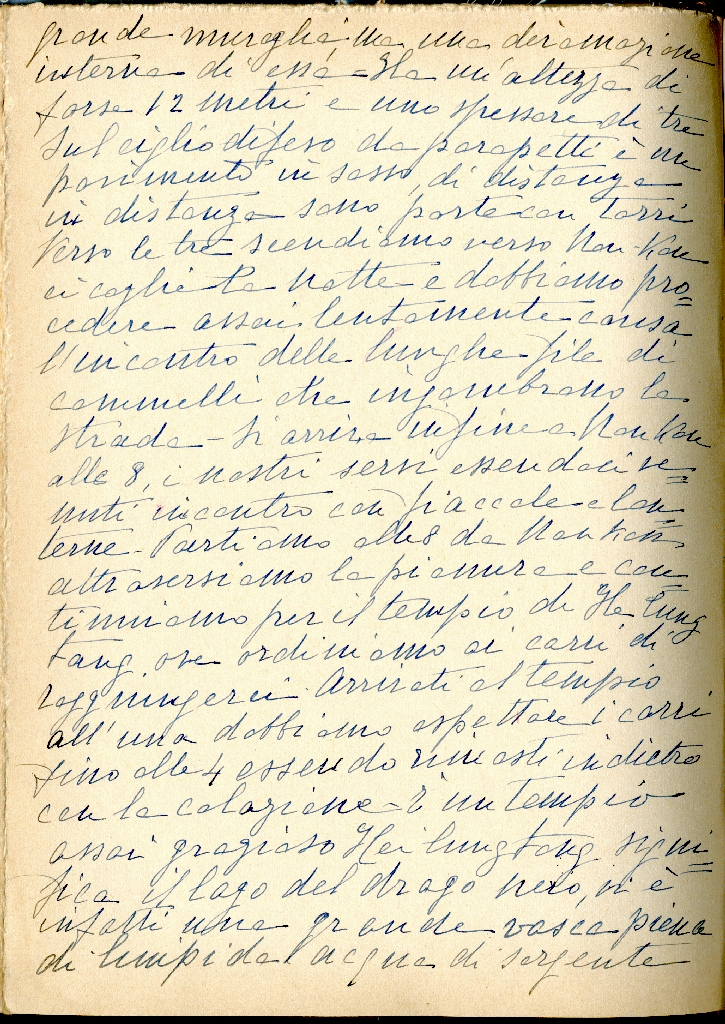 grande muraglia, ma una diramazione
interna di essa - Ha un'altezza di
forse 12 metri e uno spessore di tre
sul ciglio difeso da parapetti è un
pavimento in sasso, di distanza
in distanza sono porte con torri
Verso le tre scendiamo verso Nan-Kou
ci coglie la notte e dobbiamo pro=
cedere assai lentamente causa
l'incontro delle lunghe file di
cammelli che ingombrano la
strada - Si arriva infine a Nan Kou
alle 8, i nostri servi essendoci ve=
nuti incontro con fiaccole e lan=
terne. Partiamo alle 8 da Nan Kou
attraversiamo la pianura e con=
tinuiamo per il tempio di He Lung
Tang, ove ordiniamo ai carri di
raggiungerci. Arrivati al tempio
all'una dobbiamo aspettare i carri
fino alle 4 essendo rimasti indietro
con la colazione - È un tempio
assai grazioso Hei lung tang signi=
fica il lago del drago nero, vi è
infatti una grande vasca piena
di limpida acqua di sorgente